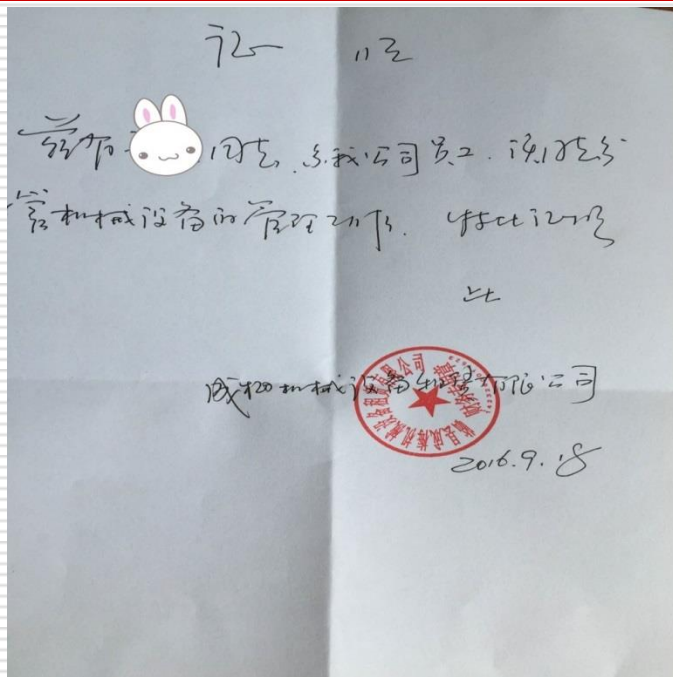 证 明
兹有 同志,系我公司员工,该同志分
管机械设备的管理工作,特此证明
此
机械设备租赁有限公司
2016.9.18